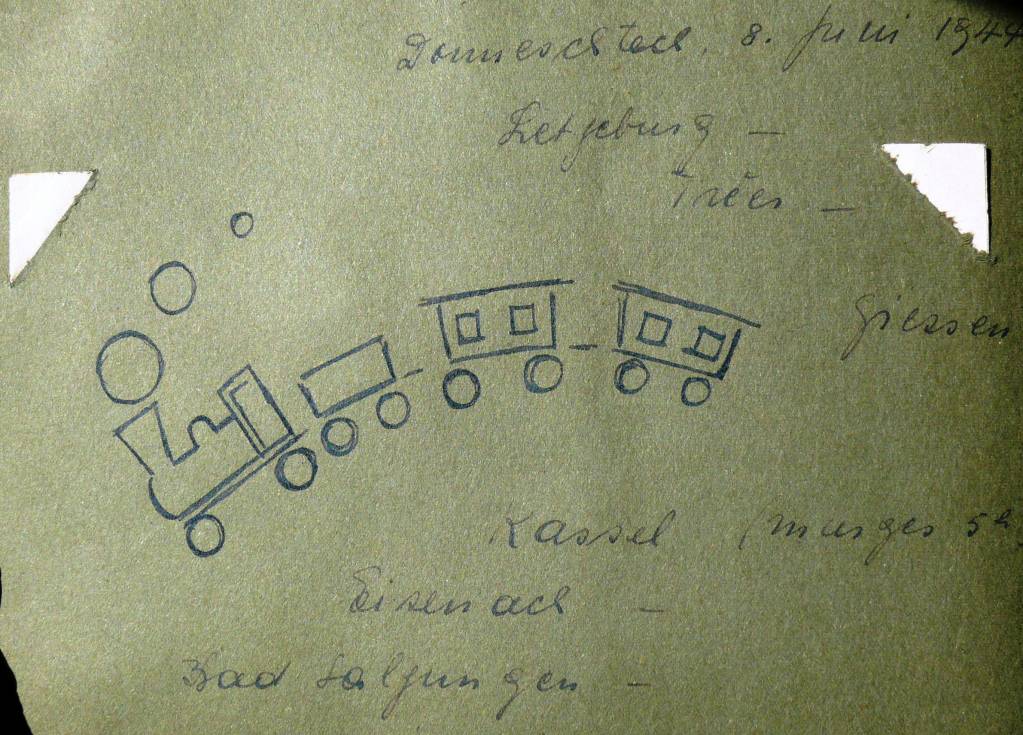 Donneschteh, 8. Juni 1944
Letzeburg —
Trier —
Giessen
Kassel (murges 5h
Eisenach —
Bad Salzungen —